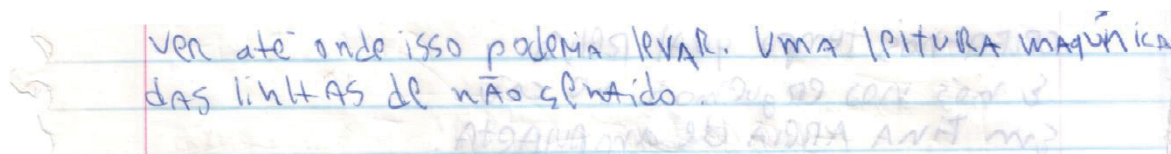 ver até onde isso poderia levar. Uma leitura maquínica
das linhas de não sentido.